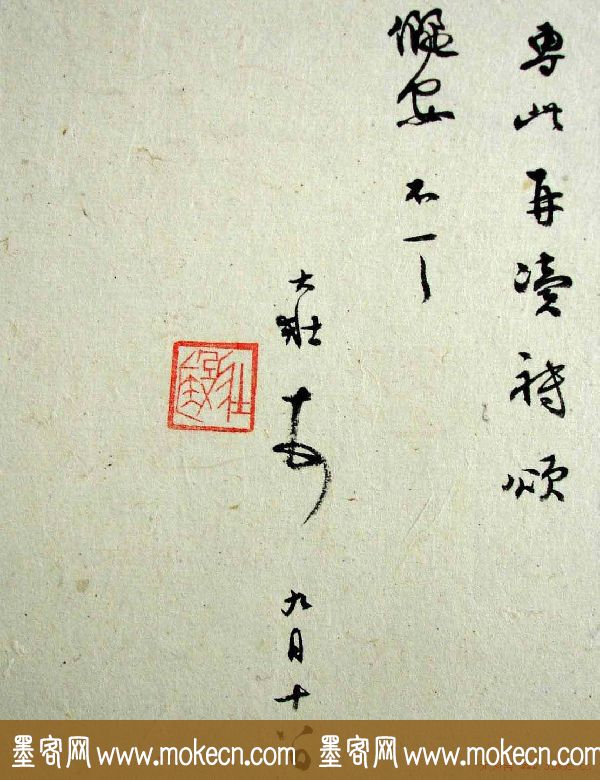 專此再瀆祗頌
儷安 不一
大壯 九月十
墨客网 www.mokecn.com 墨客网 www.mokecn.com